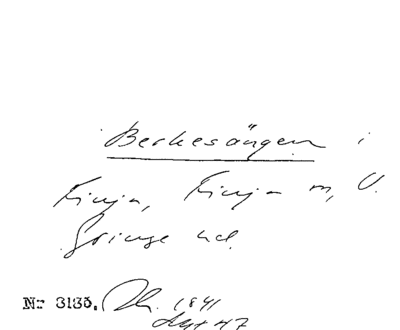 Berkesängen i
Finja, Finja m, V.
Göinge hd.
Nr 3135. 1841
Akt 47